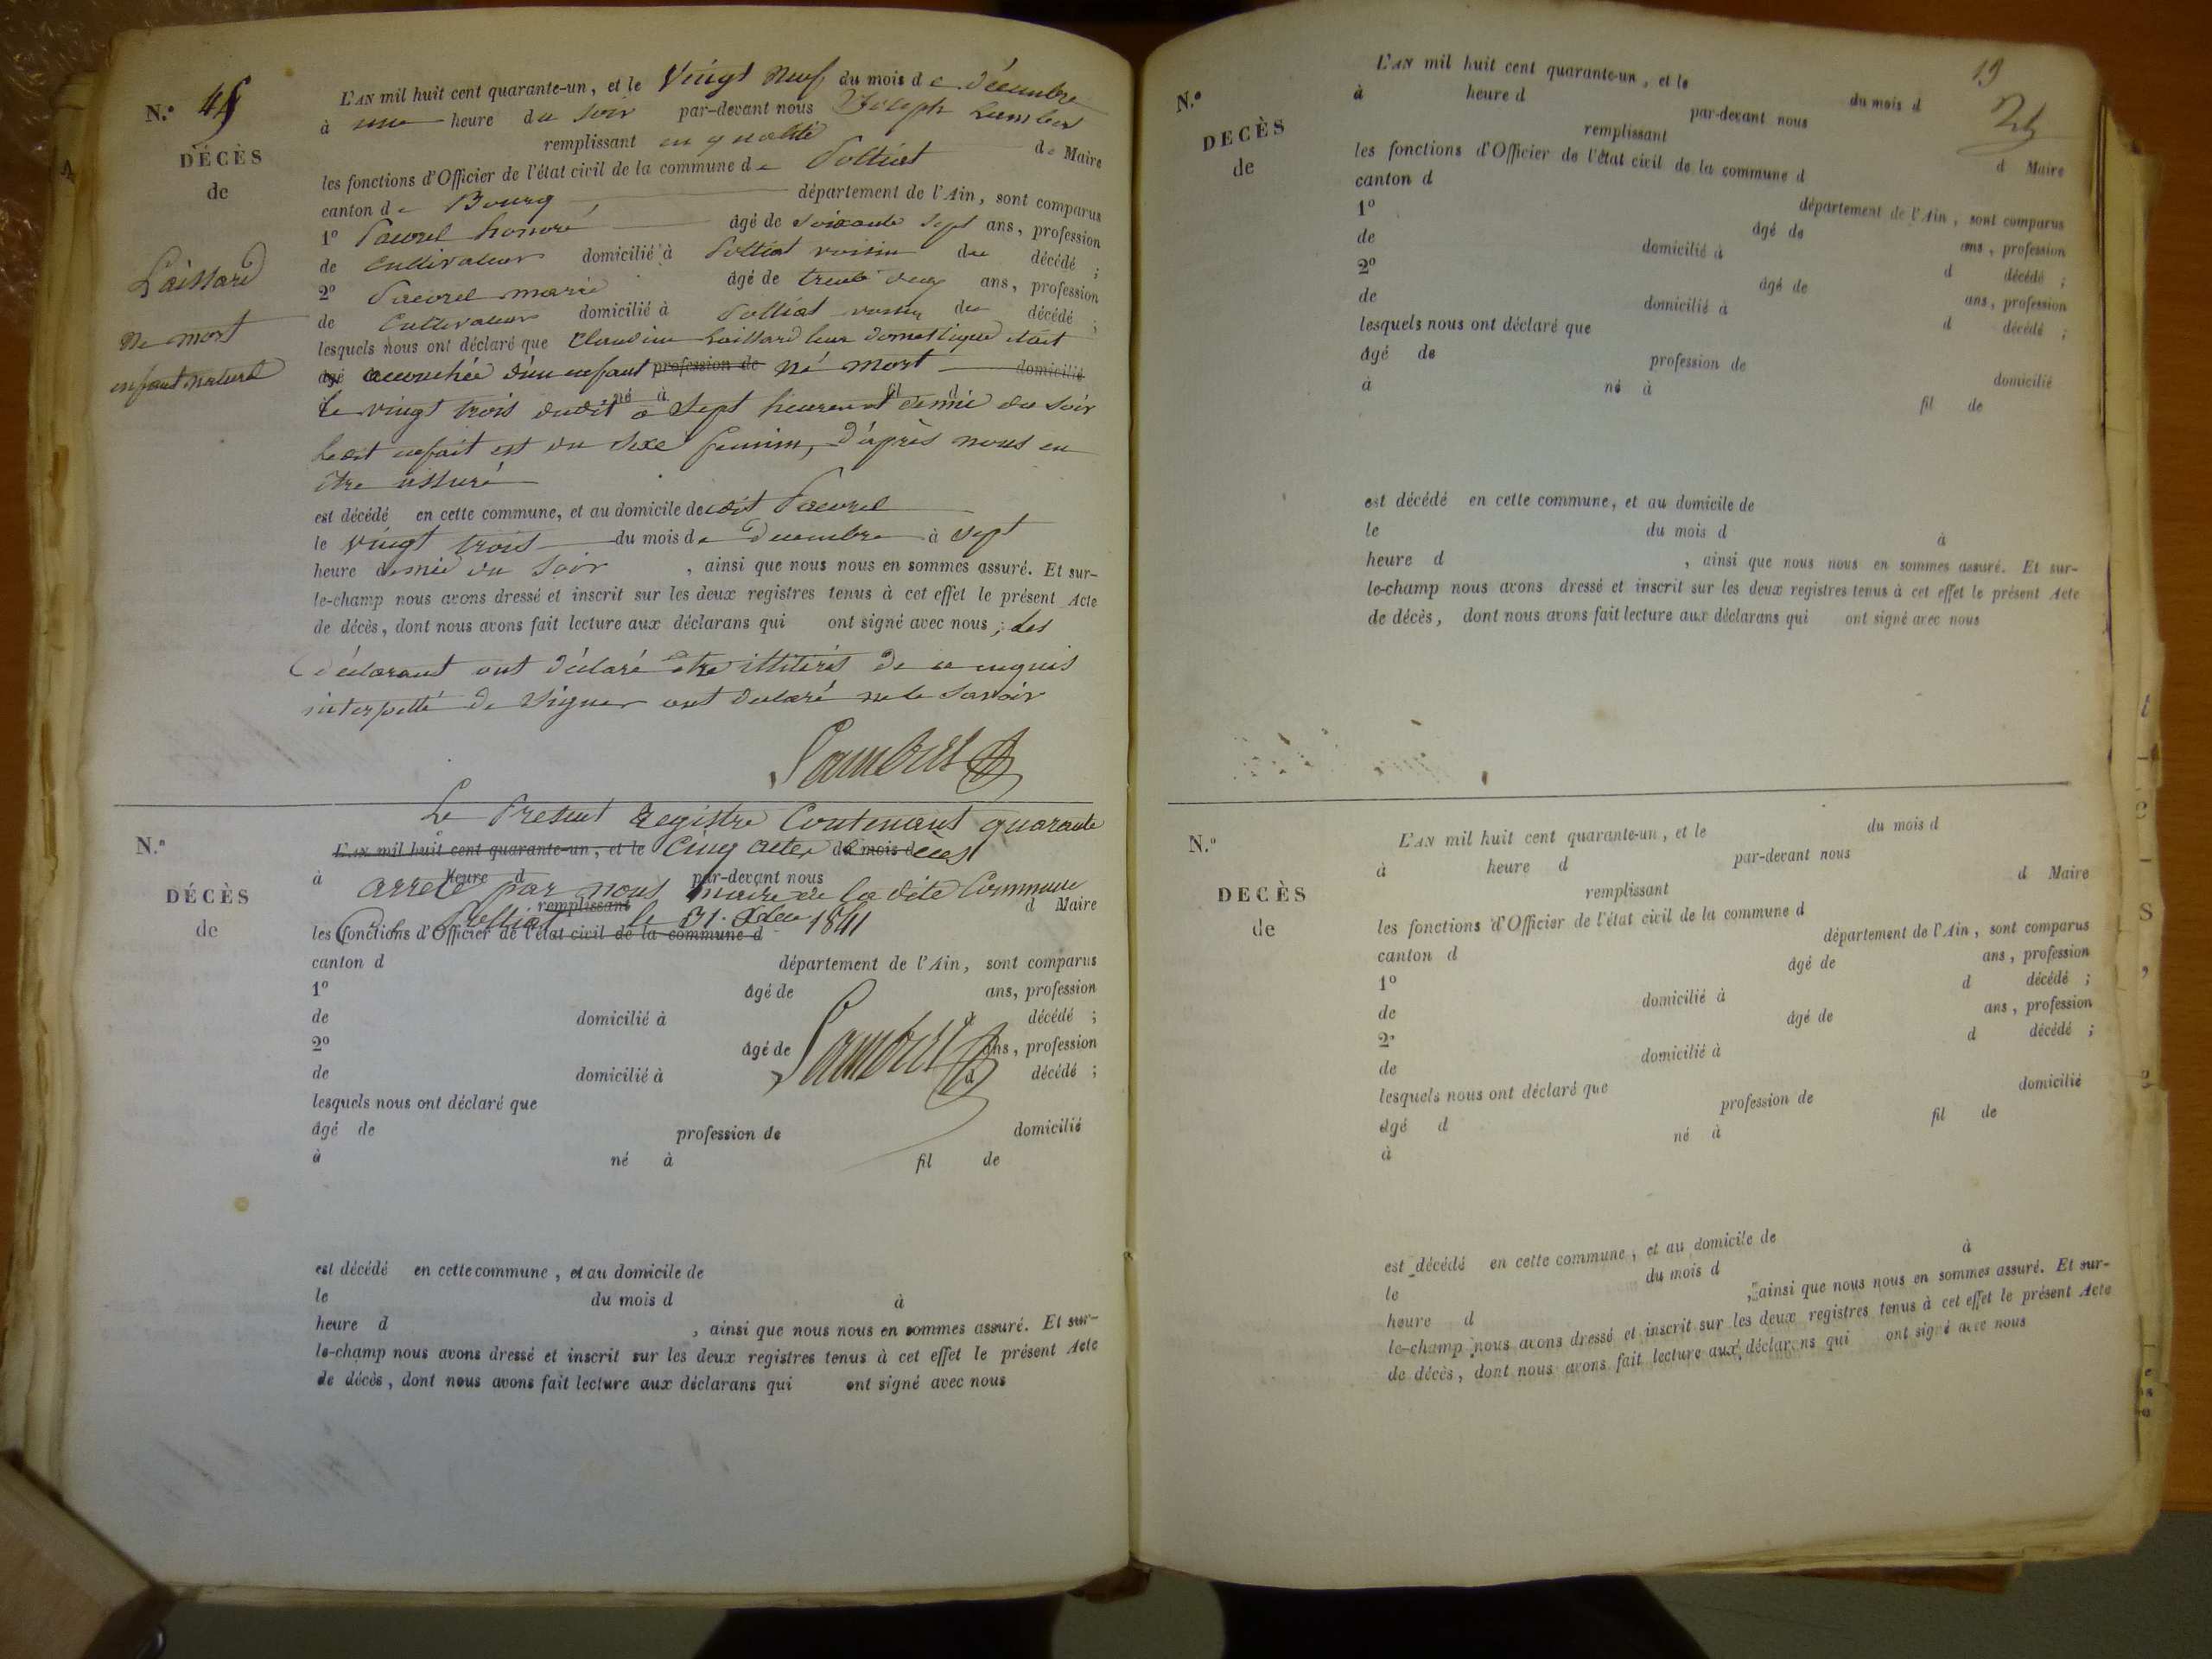 N.° 45
DÉCÈS
de
Laissard
né mort
enfant naturel
L'AN mil huit cent quarante-un, et le Vingt Neuf du mois de décembre
à une heure du soir par-devant nous Joseph Lambert
remplissant en qualité de Maire
les fonctions d'Officier de l'état civil de la commune de Polliat
canton de Bourg département de l'Ain, sont comparus
1° honoré âgé de soixante sept ans, profession
de Cultivateur domicilié à Polliat voisin du décédé ;
2° marie âgé de trente deux ans, profession
de Cultivateur domicilié à Polliat voisin du décédé ;
lesquels nous ont déclaré que Claudine Laissard leur domestique etait
âgé accouchée d'un enfant profession de né mort domicilié
né à fil d
Le vingt trois dudit a sept heures et demie du soir
Ledit enfant est du sexe feminin, d'après nous en
être assuré
est décédé en cette commune, et au domicile dudit
le vingt trois du mois de Decembre à sept
heure demie du soir , ainsi que nous nous en sommes assuré. Et sur-
le-champ nous avons dressé et inscrit sur les deux registres tenus à cet effet le présent Acte
de décès, dont nous avons fait lecture aux déclarans qui ont signé avec nous ; Les
déclarant ont déclaré être illitérés de ce enquis
interpellé de signer ont declaré ne le savoir
Lambert
Le Present Registre Contenant quarante
N.°
L'AN mil huit cent quarante-un, et le Cinq actes du mois d deces
DÉCÈS
de
à heure d par-devant nous
arreté par nous maire de la dite Commune
remplissant d Maire
de Polliat le 31 Xbre 1841
les fonctions d'Officier de l'état civil de la commune d
canton d département de l'Ain, sont comparus
1° âgé de ans, profession
de domicilié à d décédé ;
2° âgé de ans, profession
de domicilié à d décédé ;
Lambert
lesquels nous ont déclaré que
âgé de profession de domicilié
à né à fil de
est décédé en cette commune, et au domicile de
le du mois d à
heure d , ainsi que nous nous en sommes assuré. Et sur-
le-champ nous avons dressé et inscrit sur les deux registres tenus à cet effet le présent Acte
de décès, dont nous avons fait lecture aux déclarans qui ont signé avec nous
19
N.°
DÉCÈS
de
L'AN mil huit cent quarante-un, et le du mois d
à heure d par-devant nous
remplissant d Maire
les fonctions d'Officier de l'état civil de la commune d
canton d département de l'Ain, sont comparus
1° âgé de ans, profession
de domicilié à d décédé ;
2° âgé de ans, profession
de domicilié à d décédé ;
lesquels nous ont déclaré que
âgé de profession de domicilié
à né à fil de
est décédé en cette commune, et au domicile de
le du mois d à
heure d , ainsi que nous nous en sommes assuré. Et sur-
le-champ nous avons dressé et inscrit sur les deux registres tenus à cet effet le présent Acte
de décès, dont nous avons fait lecture aux déclarans qui ont signé avec nous
N.°
DÉCÈS
de
L'AN mil huit cent quarante-un, et le du mois d
à heure d par-devant nous
remplissant d Maire
les fonctions d'Officier de l'état civil de la commune d
canton d département de l'Ain, sont comparus
1° âgé de ans, profession
de domicilié à d décédé ;
2° âgé de ans, profession
de domicilié à d décédé ;
lesquels nous ont déclaré que
âgé d profession de domicilié
à né à fil de
est décédé en cette commune, et au domicile de
le du mois d à
heure d , ainsi que nous nous en sommes assuré. Et sur-
le-champ nous avons dressé et inscrit sur les deux registres tenus à cet effet le présent Acte
de décès, dont nous avons fait lecture aux déclarans qui ont signé avec nous